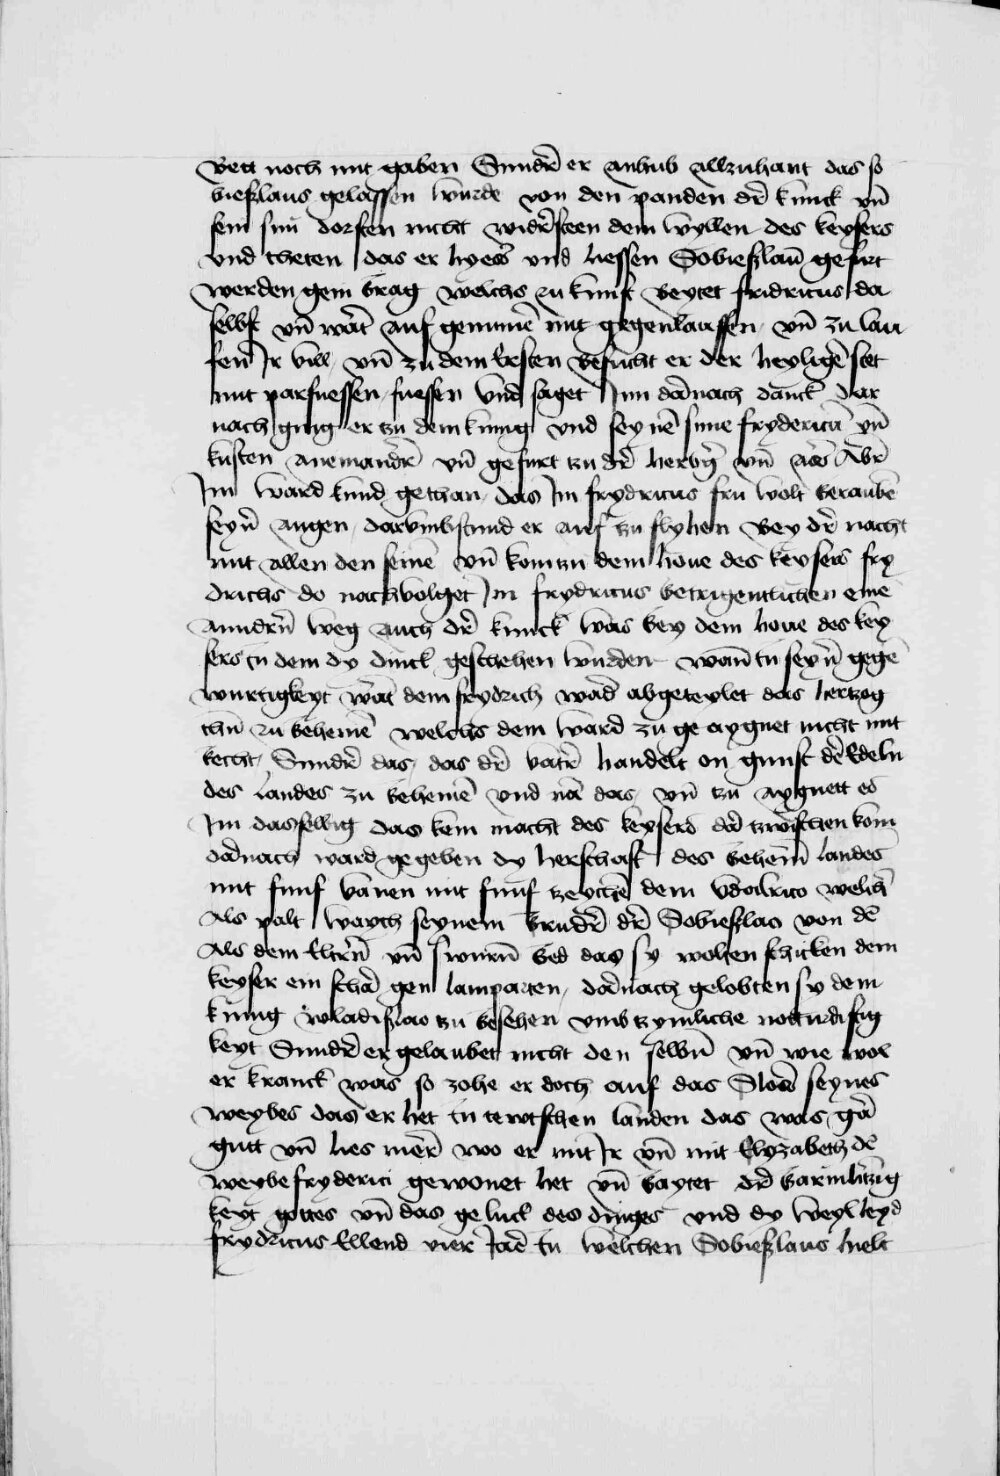 Bett noch mit gaben Sundr̄ er anhub allzuhant das so
bießlaus gelassen wurde von den panden dr̄ kunck vn̄
sein sun dorsten nicht widr̄steen dem wyllen des keysers
vnd theten das er hyess vnd liessen Sobießlau gefurt
werden gein brag welchs zukunft beytet fridricus da
selbst vn̄ wart auf genumē mit gegenlauffen vn̄ zu lau
fen Ir vill vn̄ zu dem Ersten besucht er der heyligē stet
mit parfuessen fuessen vnd saget Im darnach danck dar
nach ging er tzu dem kunig vnd seynē sune fryderico vn̄
kusten aneinandr̄ vn̄ gefurt tzu dr̄ herbrig vn̄ ass Abr̄
Im ward kund gethan das In frydricus fru wolt beraubē
seyn̄ augen darvmb stund er auf tzu flyhen bey dr̄ nacht
mit allen den seinē vn̄ kom zu dem houe des keysers fry
drichs do nachvolget Im frydricus betrigentlichen eine
anndrn̄ weg auch dr̄ kunck was bey dem houe des key
sers in dem dy dinck geschehen wurden wan̄ in seyn̄ gegē
wurtigkeyt wart dem frydrich ward abgeteylet das hertzog
thu zu behemē welchs dem ward zu ge aygnet nicht mit
recht Sundr̄ das das dr̄ vatr̄ handelt on gunst der Edeln
des landes zu behemē vnd nā das vn̄ tzu aygnett es
Im dasselbig das kein macht des keysers dar tzwischen kom
darnach ward gegeben dy herschaft des behem̄ landes
mit funf vanen mit funf zeychē dem vdalrico welchr̄
als palt waych seynem brudr̄ dr̄ Sobießlao von dē
als dem Eltrn̄ vn̄ swurn̄ bed das sy wolten schicken dem
keyser ein schar gen lamparten darnach gelobten sy dem
kunig wladißlao tzu besehen vmb tzymliche notturdiftig
keyt Sundr̄ er gelaubet nicht den selbn̄ vn̄ wie wol
er kranck was so zohe er doch auf das Sloss seynes
weybes das er het in tewtschen landen das was gar
gutt vn̄ hies mer̄ wo er mit Ir vn̄ mit Elyzabeth dē
weybe fryderici gewonet het vn̄ baytet dr̄ barmhtzig
keyt gottes vn̄ das geluck des dinges vnd dy weyl leyd
frydricus Ellend vier Iar in welchen Sobießlaus hielt